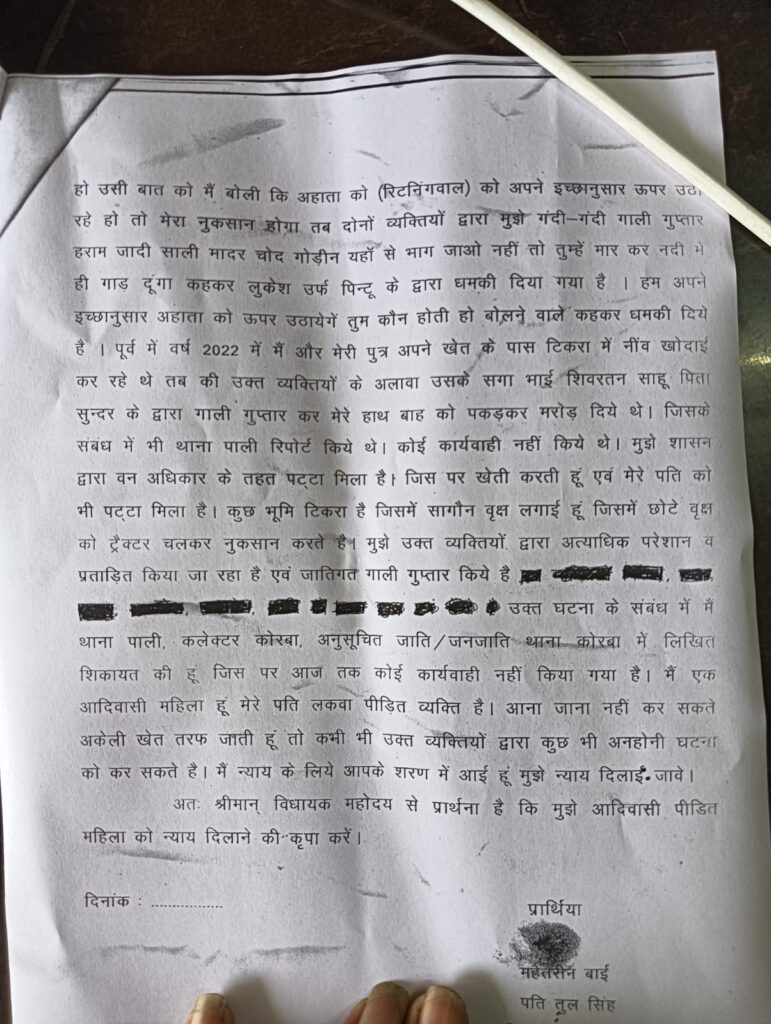 हो उसी बात को मैं बोली कि अहाता को (रिटर्निंगवाल) को अपने इच्छानुसार ऊपर उठा
रहे हो तो मेरा नुकसान होगा तब दोनों व्यक्तियों द्वारा मुझे गंदी–गंदी गाली गुप्तार
हराम जादी साली मादर चोद गोड़ीन यहाँ से भाग जाओ नहीं तो तुम्हें मार कर नदी में
ही गाड़ दूंगा कहकर लुकेश उर्फ पिन्टू के द्वारा धमकी दिया गया है । हम अपने
इच्छानुसार अहाता को ऊपर उठायेगें तुम कौन होती हो बोलने वाले कहकर धमकी दिये
है । पूर्व में वर्ष 2022 में मैं और मेरी पुत्र अपने खेत के पास टिकरा में नींव खोदाई
कर रहे थे तब की उक्त व्यक्तियों के अलावा उसके सगा भाई शिवरतन साहू पिता
सुन्दर के द्वारा गाली गुप्तार कर मेरे हाथ बाह को पकड़कर मरोड़ दिये थे। जिसके
संबंध में भी थाना पाली रिपोर्ट किये थे। कोई कार्यवाही नहीं किये थे। मुझे शासन
द्वारा वन अधिकार के तहत पट्टा मिला है। जिस पर खेती करती हूं एवं मेरे पति को
भी पट्टा मिला है। कुछ भूमि टिकरा है जिसमें सागौन वृक्ष लगाई हूं जिसमें छोटे वृक्ष
को ट्रैक्टर चलकर नुकसान करते है। मुझे उक्त व्यक्तियों द्वारा अत्याधिक परेशान व
प्रताड़ित किया जा रहा है एवं जातिगत गाली गुप्तार किये है
उक्त घटना के संबंध में मैं
थाना पाली, कलेक्टर कोरबा, अनुसूचित जाति/जनजाति थाना कोरबा में लिखित
शिकायत की हूं जिस पर आज तक कोई कार्यवाही नहीं किया गया है। मैं एक
आदिवासी महिला हूं मेरे पति लकवा पीड़ित व्यक्ति है। आना जाना नहीं कर सकते
अकेली खेत तरफ जाती हूं तो कभी भी उक्त व्यक्तियों द्वारा कुछ भी अनहोनी घटना
को कर सकते है। मैं न्याय के लिये आपके शरण में आई हूं मुझे न्याय दिलाई जावे।
अतः श्रीमान् विधायक महोदय से प्रार्थना है कि मुझे आदिवासी पीडित
महिला को न्याय दिलाने की कृपा करें।
दिनांक : ................
प्रार्थिया
महेतरीन बाई
पति तुल सिंह